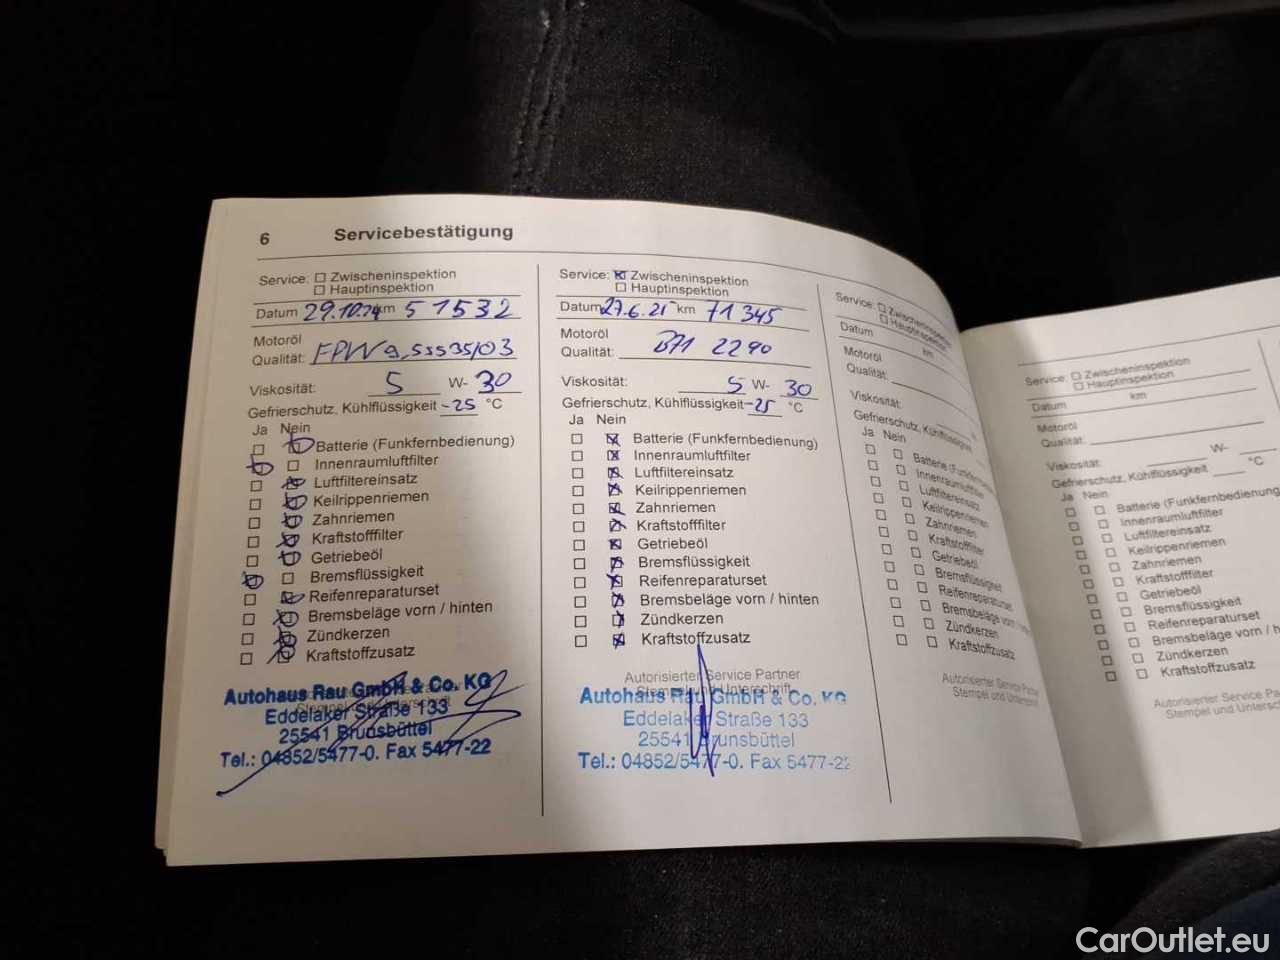 6 Servicebestätigung
Service: Zwischeninspektion
Hauptinspektion
Datum 29.10. km 51532
Motoröl
Qualität:
Viskosität: 5 W- 30
Gefrierschutz, Kühlflüssigkeit -25 °C
Ja Nein
Batterie (Funkfernbedienung)
Innenraumluftfilter
Luftfiltereinsatz
Keilrippenriemen
Zahnriemen
Kraftstofffilter
Getriebeöl
Bremsflüssigkeit
Reifenreparaturset
Bremsbeläge vorn / hinten
Zündkerzen
Kraftstoffzusatz
Autohaus Rau GmbH & Co. KG
Eddelaker Straße 133
25541 Brunsbüttel
Tel.: 04852/5477-0. Fax 5477-22
Service: Zwischeninspektion
Hauptinspektion
Datum 27.6.21 km 71345
Motoröl
Qualität: B71 2290
Viskosität: 5 W- 30
Gefrierschutz, Kühlflüssigkeit -25 °C
Ja Nein
Batterie (Funkfernbedienung)
Innenraumluftfilter
Luftfiltereinsatz
Keilrippenriemen
Zahnriemen
Kraftstofffilter
Getriebeöl
Bremsflüssigkeit
Reifenreparaturset
Bremsbeläge vorn / hinten
Zündkerzen
Kraftstoffzusatz
Autorisierter Service Partner
Stempel und Unterschrift
Autohaus Rau GmbH & Co. KG
Eddelaker Straße 133
25541 Brunsbüttel
Tel.: 04852/5477-0. Fax 5477-22
Service: Zwischeninspektion
Hauptinspektion
Datum km
Motoröl
Qualität:
Viskosität:
Gefrierschutz, Kühlflüssigkeit
Ja Nein
Batterie
Innenraumluftfilter
Luftfiltereinsatz
Keilrippenriemen
Zahnriemen
Kraftstofffilter
Getriebeöl
Bremsflüssigkeit
Reifenreparaturset
Bremsbeläge vorn
Zündkerzen
Kraftstoffzusatz
Autorisierter Service
Stempel und
Service: Zwischeninspektion
Hauptinspektion
Datum km
Motoröl
Qualität:
Viskosität: W-
Gefrierschutz, Kühlflüssigkeit °C
Ja Nein
Batterie (Funkfernbedienung
Innenraumluftfilter
Luftfiltereinsatz
Keilrippenriemen
Zahnriemen
Kraftstofffilter
Getriebeöl
Bremsflüssigkeit
Reifenreparaturset
Bremsbeläge vorn / h
Zündkerzen
Kraftstoffzusatz
Autorisierter Service Pa
Stempel und Untersch
CarOutlet.eu